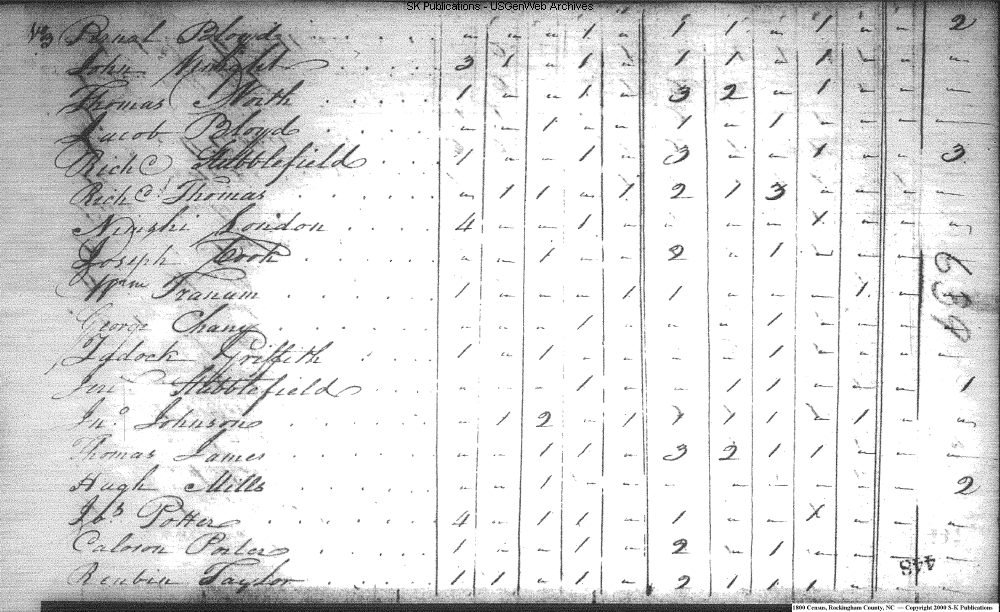 SK Publications - USGenWeb Archives
Bloyd . . . " " " 1 " 1 1 " 1 " " 2
John . . . . . 3 1 " 1 " 1 1 " 1 " " "
Thomas North . . . . . 1 " " 1 " 3 2 " 1 " " "
Jacob Bloyd . . . . " " 1 " " 1 " 1 " " " "
Richd Stubblefield . . . 1 " " 1 " 3 " " 1 " " 3
Richd Thomas . . . . . " 1 1 " 1 2 1 3 " " " "
London . . . . 4 " " 1 " " " " 1 " " "
Joseph Cook . . . . . " " 1 " " 2 " 1 " " " "
Wm Tranum . . . . . 1 " " " 1 1 " " " 1 " "
George Chany . . . . . " " " 1 " " " 1 " " " "
Griffith . . . 1 " 1 " " " " 1 " " " "
Stubblefield . . " " " 1 " " 1 1 " " " 1
Jno Johnson . . . . . " 1 2 " 1 1 1 1 " 1 " "
Thomas James . . . . . " " 1 1 " 3 2 1 1 " " "
Hugh Mills . . . . . " " 1 " " " " " " " " 2
Potter . . . . . . 4 " 1 1 " 1 " " 1 " " "
Porter . . . . 1 " " 1 " 2 " 1 " " "
Reubin Taylor . . . . 1 1 " 1 " 2 1 1 1 " "
639
448
1800 Census, Rockingham County, NC — Copyright 2000 S-K Publications